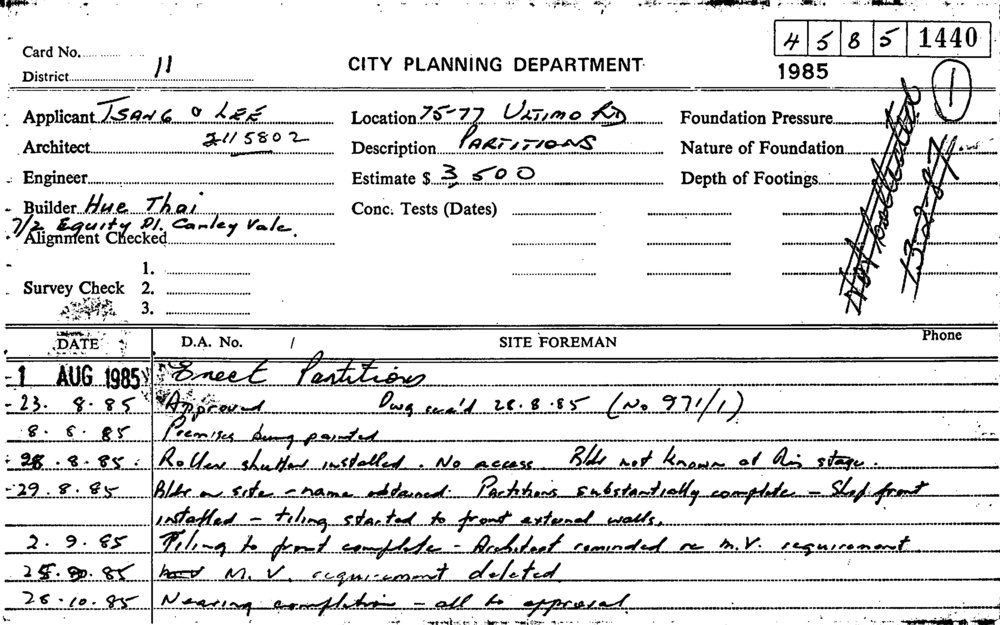 4 5 8 5 1440
1985
1
Card No.
District 11
CITY PLANNING DEPARTMENT
Applicant TSANG & LEE
Location 75-77 ULTIMO RD
Foundation Pressure
Architect 2115802
Description PARTITIONS
Nature of Foundation
Engineer
Estimate $ 3,500
Depth of Footings
Builder Hue Thai
Conc. Tests (Dates)
7/2 Equity Pl. Canley Vale.
Alignment Checked
13-2-87
1.
Survey Check 2.
3.
DATE D.A. No. / SITE FOREMAN Phone
-1 AUG 1985 Erect Partitions
23. 8.85 Approved Dwg rec'd 28.8.85 (No 971/1)
8. 8. 85 Premises being painted
28.8.85. Roller shutters installed. No access. Bldr not known at this stage.
29.8.85 Bldr on site - name obtained. Partitions substantially complete - Shop front
installed - tiling started to front external walls.
2. 9. 85 Tiling to front complete - Architect reminded re M.V. requirement
85 M.V. requirement deleted
28.10.85 Nearing completion - all to approval.